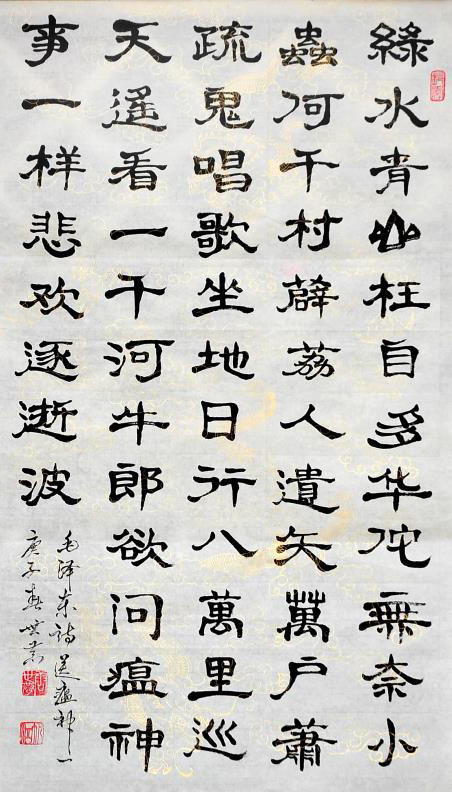 綠水青山枉自多华佗無奈小
蟲何千村薜荔人遺矢萬户蕭
疏鬼唱歌坐地日行八萬里巡
天遙看一千河牛郎欲问瘟神
事一样悲欢逐逝波
毛泽东詩送瘟神一
庚子春世